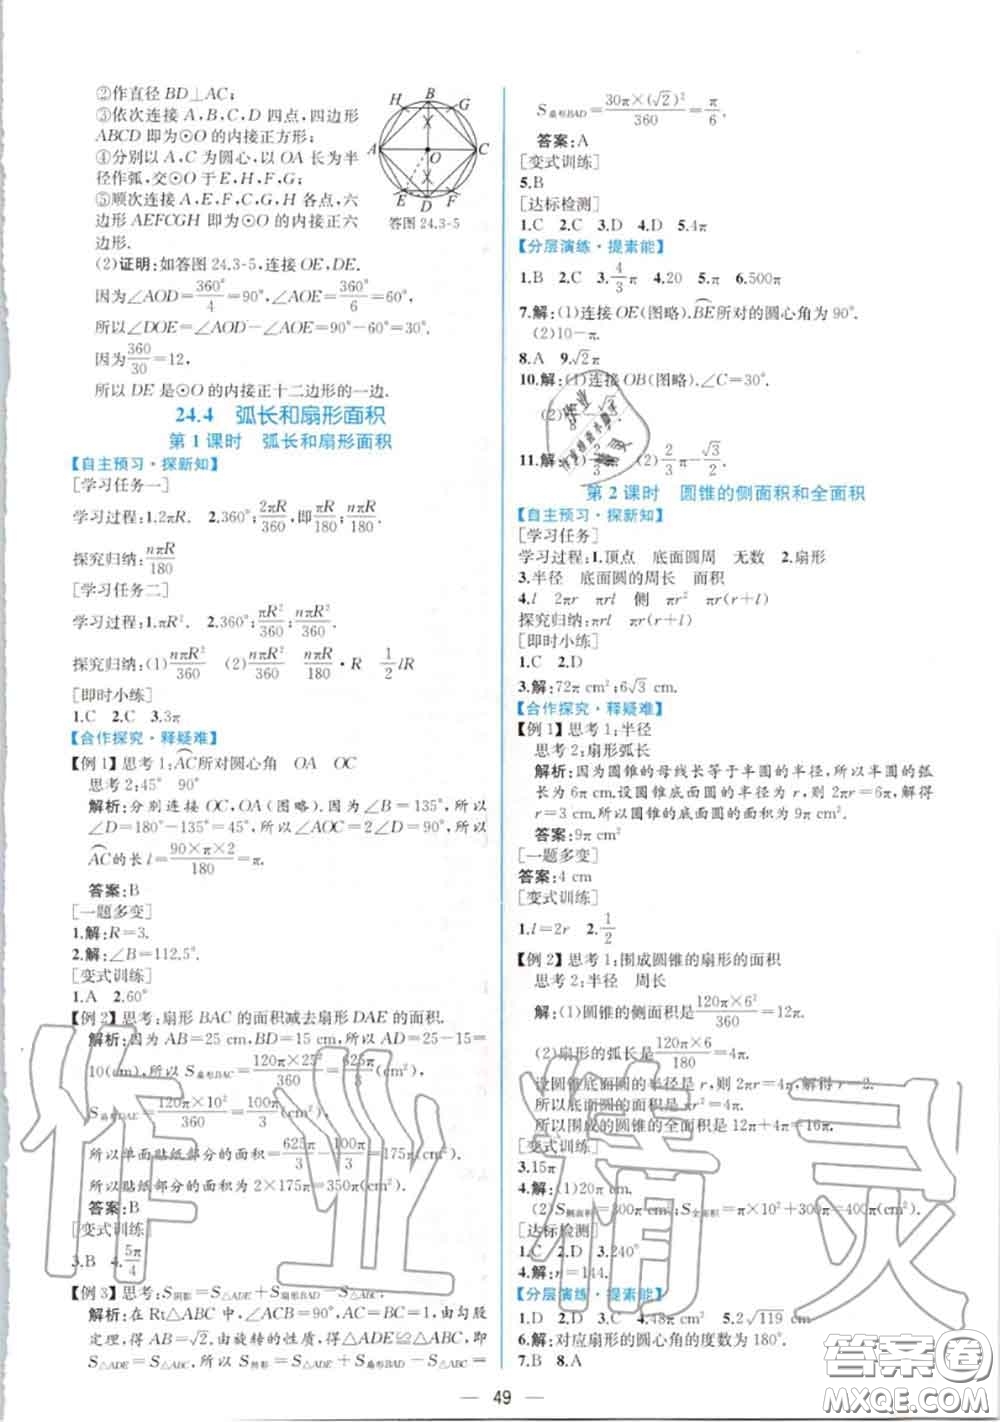 ②作直径 BD⊥AC;
③依次连接 A,B,C,D 四点,四边形
ABCD 即为⊙O 的内接正方形;
④分别以 A,C 为圆心,以 OA 长为半
径作弧,交⊙O 于 E,H,F,G;
⑤顺次连接 A,E,F,C,G,H 各点,六
边形 AEFCGH 即为⊙O 的内接正六
边形.
H B G
A O C
E D F
答图 24.3-5
(2)证明:如答图 24.3-5,连接 OE,DE.
因为∠AOD=360°/4=90°,∠AOE=360°/6=60°,
所以∠DOE=∠AOD-∠AOE=90°-60°=30°.
因为360/30=12,
所以 DE 是⊙O 的内接正十二边形的一边.
24.4 弧长和扇形面积
第 1 课时 弧长和扇形面积
【自主预习·探新知】
[学习任务一]
学习过程:1.2πR. 2.360°;2πR/360;即πR/180;nπR/180.
探究归纳:nπR/180
[学习任务二]
学习过程:1.πR². 2.360°;πR²/360;nπR²/360.
探究归纳:(1)nπR²/360 (2)nπR²/360 nπR/180·R 1/2 lR
[即时小练]
1.C 2.C 3.3π
【合作探究·释疑难】
【例 1】思考 1:AC所对圆心角 OA OC
思考 2:45° 90°
解析:分别连接 OC,OA(图略).因为∠B=135°,所以
∠D=180°-135°=45°,所以∠AOC=2∠D=90°,所以
AC的长 l=90×π×2/180=π.
答案:B
[一题多变]
1.解:R=3.
2.解:∠B=112.5°.
[变式训练]
1.A 2.60°
【例 2】思考:扇形 BAC 的面积减去扇形 DAE 的面积.
解析:因为 AB=25 cm,BD=15 cm,所以 AD=25-15=
10(cm),所以 S扇形BAC=120π×25²/360=625π/3(cm²),
S扇形DAE=120π×10²/360=100π/3(cm²),
所以单面贴纸部分的面积=625π/3-100π/3=175π(cm²),
所以贴纸部分的面积为 2×175π=350π(cm²).
答案:B
[变式训练]
3.B 4.5π/4
【例 3】思考:S阴影=S△ADE+S扇形BAD-S△ABC.
解析:在 Rt△ABC 中,∠ACB=90°,AC=BC=1,由勾股
定理,得 AB=√2,由旋转的性质,得△ADE≌△ABC,即
S△ADE=S△ABC,所以 S阴影=S△ADE+S扇形BAD-S△ABC=
S扇形BAD=30π×(√2)²/360=π/6.
答案:A
[变式训练]
5.B
[达标检测]
1.C 2.C 3.D 4.D 5.4π
【分层演练·提素能】
1.B 2.C 3.4/3π 4.20 5.π 6.500π
7.解:(1)连接 OE(图略).BE所对的圆心角为 90°.
(2)10-π.
8.A 9.√2π
10.解:(1)连接 OB(图略).∠C=30°.
11.解: (2)2/3π-√3/2.
第 2 课时 圆锥的侧面积和全面积
【自主预习·探新知】
[学习任务]
学习过程:1.顶点 底面圆周 无数 2.扇形
3.半径 底面圆的周长 面积
4.l 2πr πrl 侧 πr² πr(r+l)
探究归纳:πrl πr(r+l)
[即时小练]
1.C 2.D
3.解:72π cm²;6√3 cm.
【合作探究·释疑难】
【例 1】思考 1:半径
思考 2:扇形弧长
解析:因为圆锥的母线长等于半圆的半径,所以半圆的弧
长为 6π cm.设圆锥底面圆的半径为 r,则 2πr=6π,解得
r=3 cm.所以圆锥的底面圆的面积为 9π cm².
答案:9π cm²
[一题多变]
答案:4 cm
[变式训练]
1.l=2r 2.1/2
【例 2】思考 1:围成圆锥的扇形的面积
思考 2:半径 周长
解:(1)圆锥的侧面积是120π×6²/360=12π.
(2)扇形的弧长是120π×6/180=4π,
设圆锥底面圆的半径是 r,则 2πr=4π,解得 r=2.
所以底面圆的面积是 πr²=4π,
所以围成的圆锥的全面积是 12π+4π=16π.
[变式训练]
3.15π
4.解:(1)20π cm.
(2)S侧面积=300π cm²;S全面积=π×10²+300π=400π(cm²).
[达标检测]
1.C 2.D 3.240°
4.解:n=144.
【分层演练·提素能】
1.D 2.D 3.C 4.48π cm² 5.2√119 cm
6.解:对应扇形的圆心角的度数为 180°.
7.B 8.A
— 49 —
作业精灵
答案圈
MXQE.COM